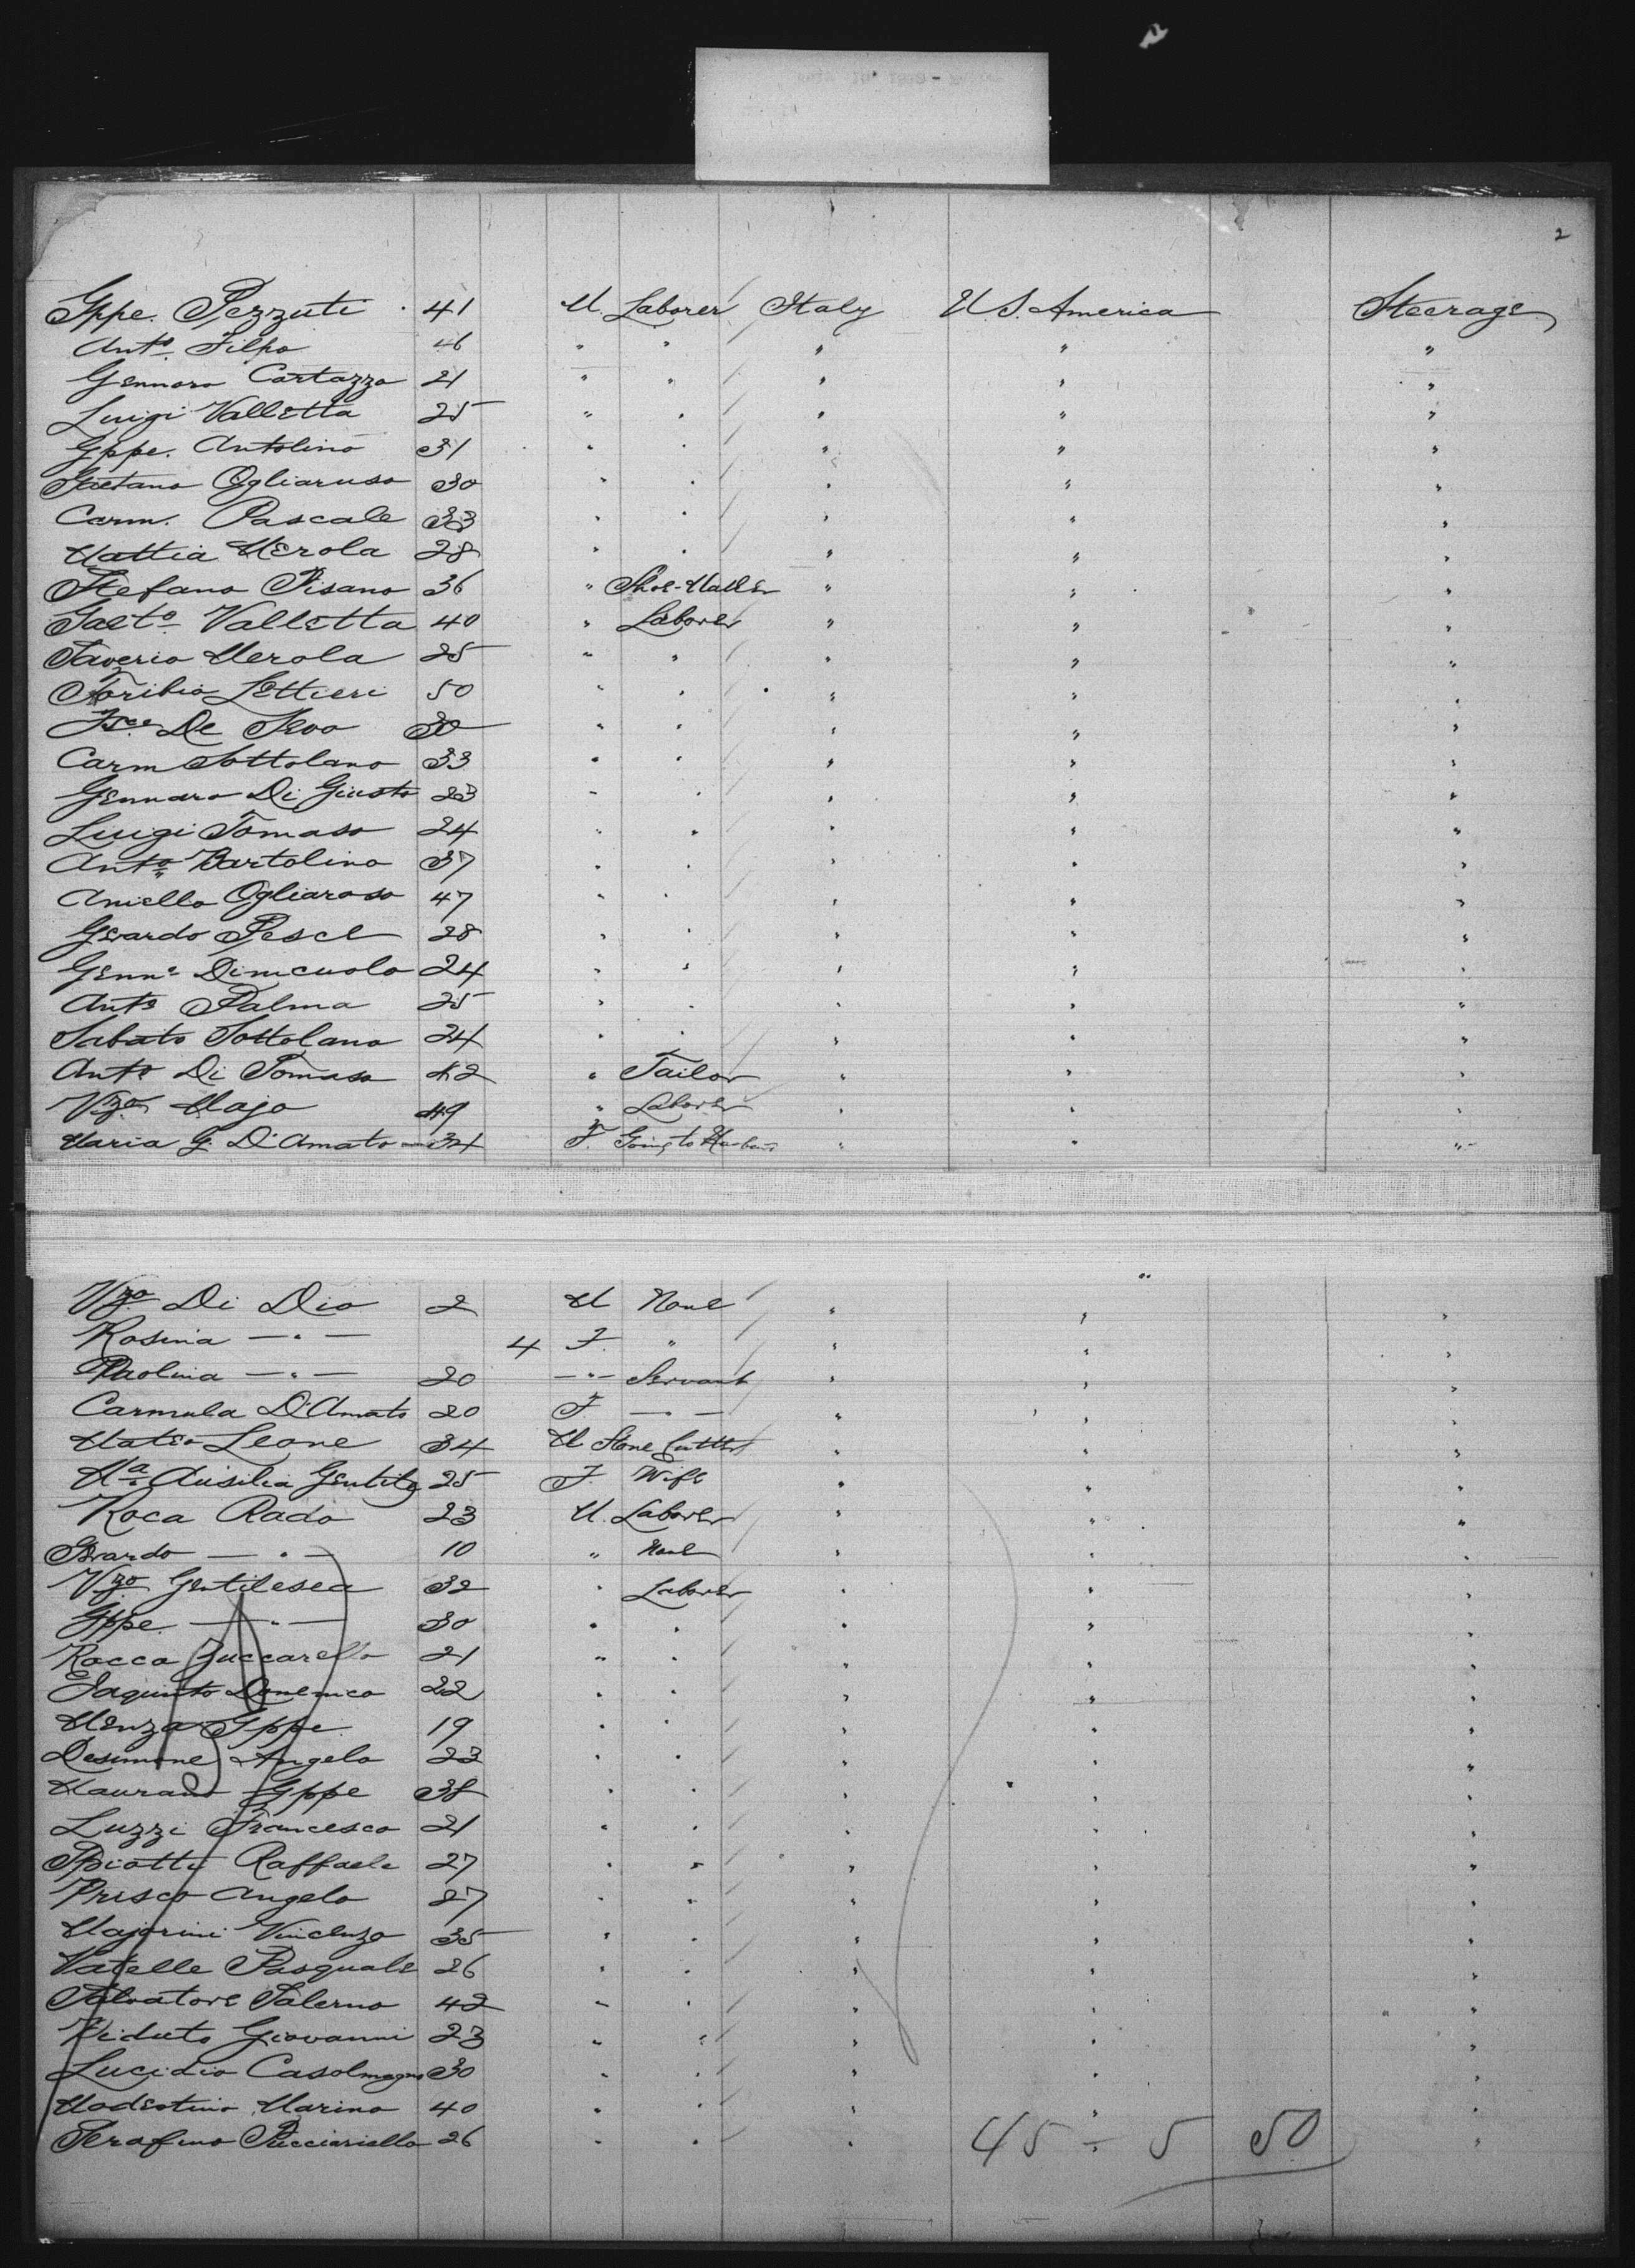 2
Gppe. Pezzuti 41 M. Laborer Italy U.S. America Steerage
Anto. Filpo 46 " " " " "
Gennaro Cartazzo 21 " " " " "
Luigi Valletta 25 " " " " "
Gppe. Antolino 31 " " " " "
Gaetano Ogliaruso 30 " " " " "
Carm. Pascale 33 " " " " "
Mattia Merola 28 " " " " "
Stefano Pisano 36 " Shoe-Maker " " "
Gaeto Valletta 40 " Laborer " " "
Saverio Merola 25 " " " " "
Toribio Lettieri 50 " " " " "
Fsco De 30 " " " " "
Carm Sottolano 33 " " " " "
Gennaro Di Giusto 23 " " " " "
Luigi Tomaso 24 " " " " "
Anto Bartolino 37 " " " " "
Aniello Ogliaroso 47 " " " " "
Gerardo Pesce 28 " " " " "
Genno Dimcuolo 24 " " " " "
Anto Palma 25 " " " " "
Sabato Sottolano 24 " " " " "
Anto Di Tomaso 42 " Tailor " " "
Vzo Majo 49 " Laborer " " "
Maria G. D'Amato 34 F. Going to Husband " " "
Vzo Di Dio 2 M None " " "
Rosina — " — 4 F. " " " "
Paolina — " — 20 — " — Servant " " "
Carmela D'Amato 20 F — " — " " "
Mateo Leone 34 M Stone Cutter " " "
Ma. Ausilia Gentile 25 F. Wife " " "
Roca Rado 23 M. Laborer " " "
Gerardo — " — 10 " None " " "
Vzo Gentilesca 32 " Laborer " " "
Gppe — " — 30 " " " " "
Rocco Zuccarello 21 " " " " "
Iaquinto Domenico 22 " " " " "
Menza Gppe 19 " " " " "
Desimone Angelo 23 " " " " "
Gppe 38 " " " " "
Luzzi Francesco 21 " " " " "
Raffaele 27 " " " " "
Prisco Angelo 27 " " " " "
Majorini Vincenzo 35 " " " " "
Vatelle Pasquale 26 " " " " "
Salvatore Salerno 42 " " " " "
Viduto Giovanni 23 " " " " "
Lucidio Casolmagno 30 " " " " "
Modestino Marino 40 " " " " "
Serafino Pucciariello 26 " " " " "
45 - 5 50